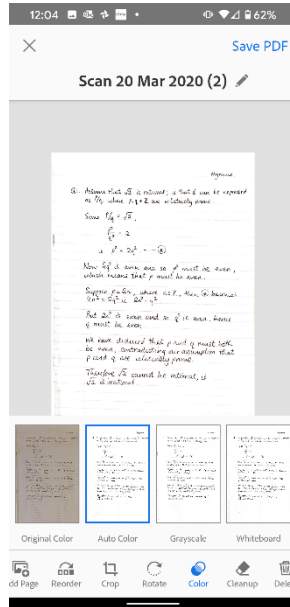 12:04
62%
Save PDF
Scan 20 Mar 2020 (2)
Q. Assume that √2 is rational; ie that it can be expressed
as p/q, where p,q ∈ Z are relatively prime.
Since p/q = √2,
p²/q² = 2
ie p² = 2q² —
Now 2q² is even and so p² must be even,
which means that p must be even.
Suppose p = 2n, where n ∈ Z, then becomes
But 2n² is even and so q² is even, hence
q must be even.
We have deduced that p and q must both
be even, contradicting our assumption that
p and q are relatively prime.
Therefore √2 cannot be rational, ie
√2 is irrational.
Original Color
Auto Color
Grayscale
Whiteboard
dd Page
Reorder
Crop
Rotate
Color
Cleanup
Dele